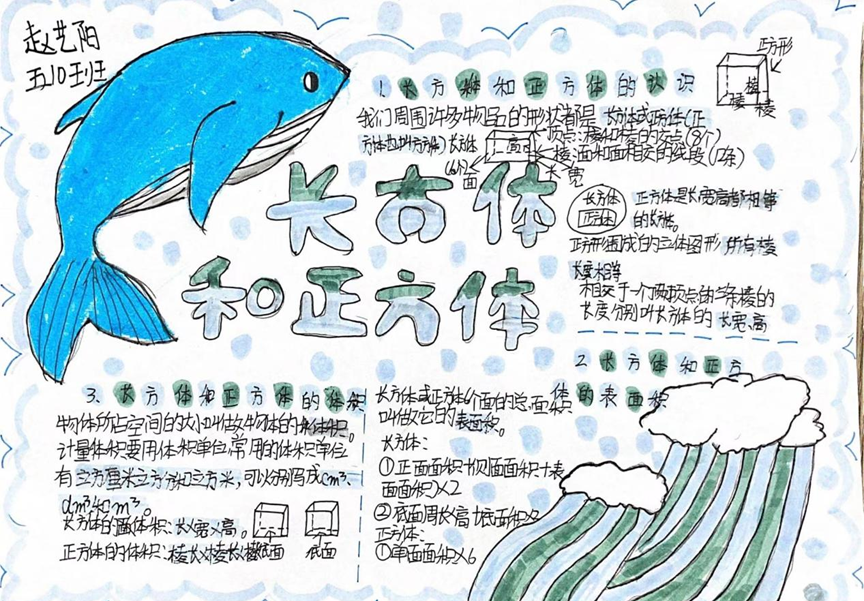 赵艺阳
五10班
正方形
棱
棱
棱
1.长方体和正方体的认识
我们周围许多物品的形状都是长方体或正方体(正
方体也叫立方体)长方体
高
顶点:棱和棱的交点(8个)
棱:面和面相交的线段(12条)
(6个)
面
长
宽
长方体
和正方体
长方体
正方体
正方体是长宽高都相等
的长方体。
正方形围成的立体图形 所有棱
长度相等
相交于一个顶点的三条棱的
长度分别叫长方体的长、宽、高
2.长方体和正方
体的表面积
长方体或正方体6个面的总面积
叫做它的表面积。
长方体:
①(正面面积+侧面面积+表
面面积)×2
②底面周长×高+底面积×2
正方体:
①单面面积×6
3.长方体和正方体的体积
物体所占空间的大小叫做物体的体积。
计量体积要用体积单位,常用的体积单位
有立方厘米立方分米和立方米,可以分别写成cm³、
dm³和m³。
长方体的体积:长×宽×高。
正方体的体积:棱长×棱长×棱长
底面
底面